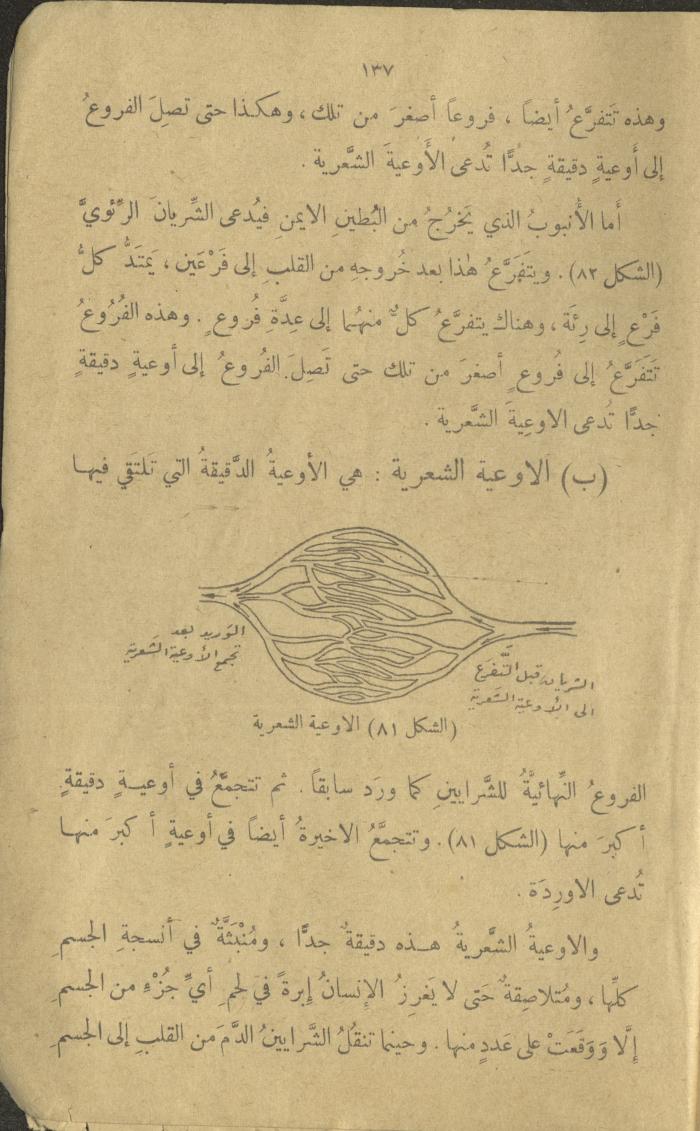 ١٣٧
وهذه تَتفرَّعُ أيضاً ، فروعاً أصغرَ من تلك ، وهكذا حتى تصِلَ الفروعُ
إلى أَوعيةٍ دقيقةٍ جدًّا تُدعى الأَوعيةَ الشَّعرية .
أما الأُنبوبُ الذي يَخرُجُ من البُطينِ الايمنِ فيُدعى الشِّريانَ الرِّئويَّ
(الشكل ٨٢) . ويتَفَرَّعُ هٰذا بعد خُروجهِ من القلبِ إلى فَرْعَين ، يَمتَدُّ كلُّ
فَرْعٍ إلى رِئَة ، وهناك يتفرَّعُ كلٌّ منهُما إلى عِدَّةِ فُروعٍ . وهذه الفُرُوعُ
تَتَفَرَّعُ إلى فُروعٍ أصغرَ من تلك حتى تَصِلَ الفُروعُ إلى أوعيةٍ دقيقةٍ
جدًّا تُدعى الاوعِيةَ الشَّعرية .
(ب) الاوعية الشعرية : هي الأوعيةُ الدَّقيقةُ التي تَلتَقي فيهـا
الوريد بعد
تجمع الأوعية الشعرية
الشريان قبل التَّفرّع
الى الأوعية الشعرية
(الشكل ٨١) الاوعية الشعرية
الفروعُ النِّهائيَّةُ للشَّرايينِ كما ورَد سابقاً . ثم تتجمَّعُ في أوعيـةٍ دقيقةٍ
أكبرَ منها (الشكل ٨١) . وتتجمَّعُ الاخيرةُ أيضاً في أوعيةٍ أكبرَ منهـا
تُدعى الاورِدَة .
والاوعيةُ الشَّعريةُ هـذه دقيقةٌ جدًّا ، ومُنْبَثَّةٌ في أنسجةِ الجسمِ
كلِّها ، ومُتلاصِقةٌ حَتى لا يَغرِزُ الإنسانُ إبرةً في لحمِ أيِّ جُزْءٍ من الجسمِ
إلّا وَوَقَعَتْ على عَددٍ منها . وحينما تنقُلُ الشَّرايينُ الدَّمَ من القلبِ إلى الجسمِ